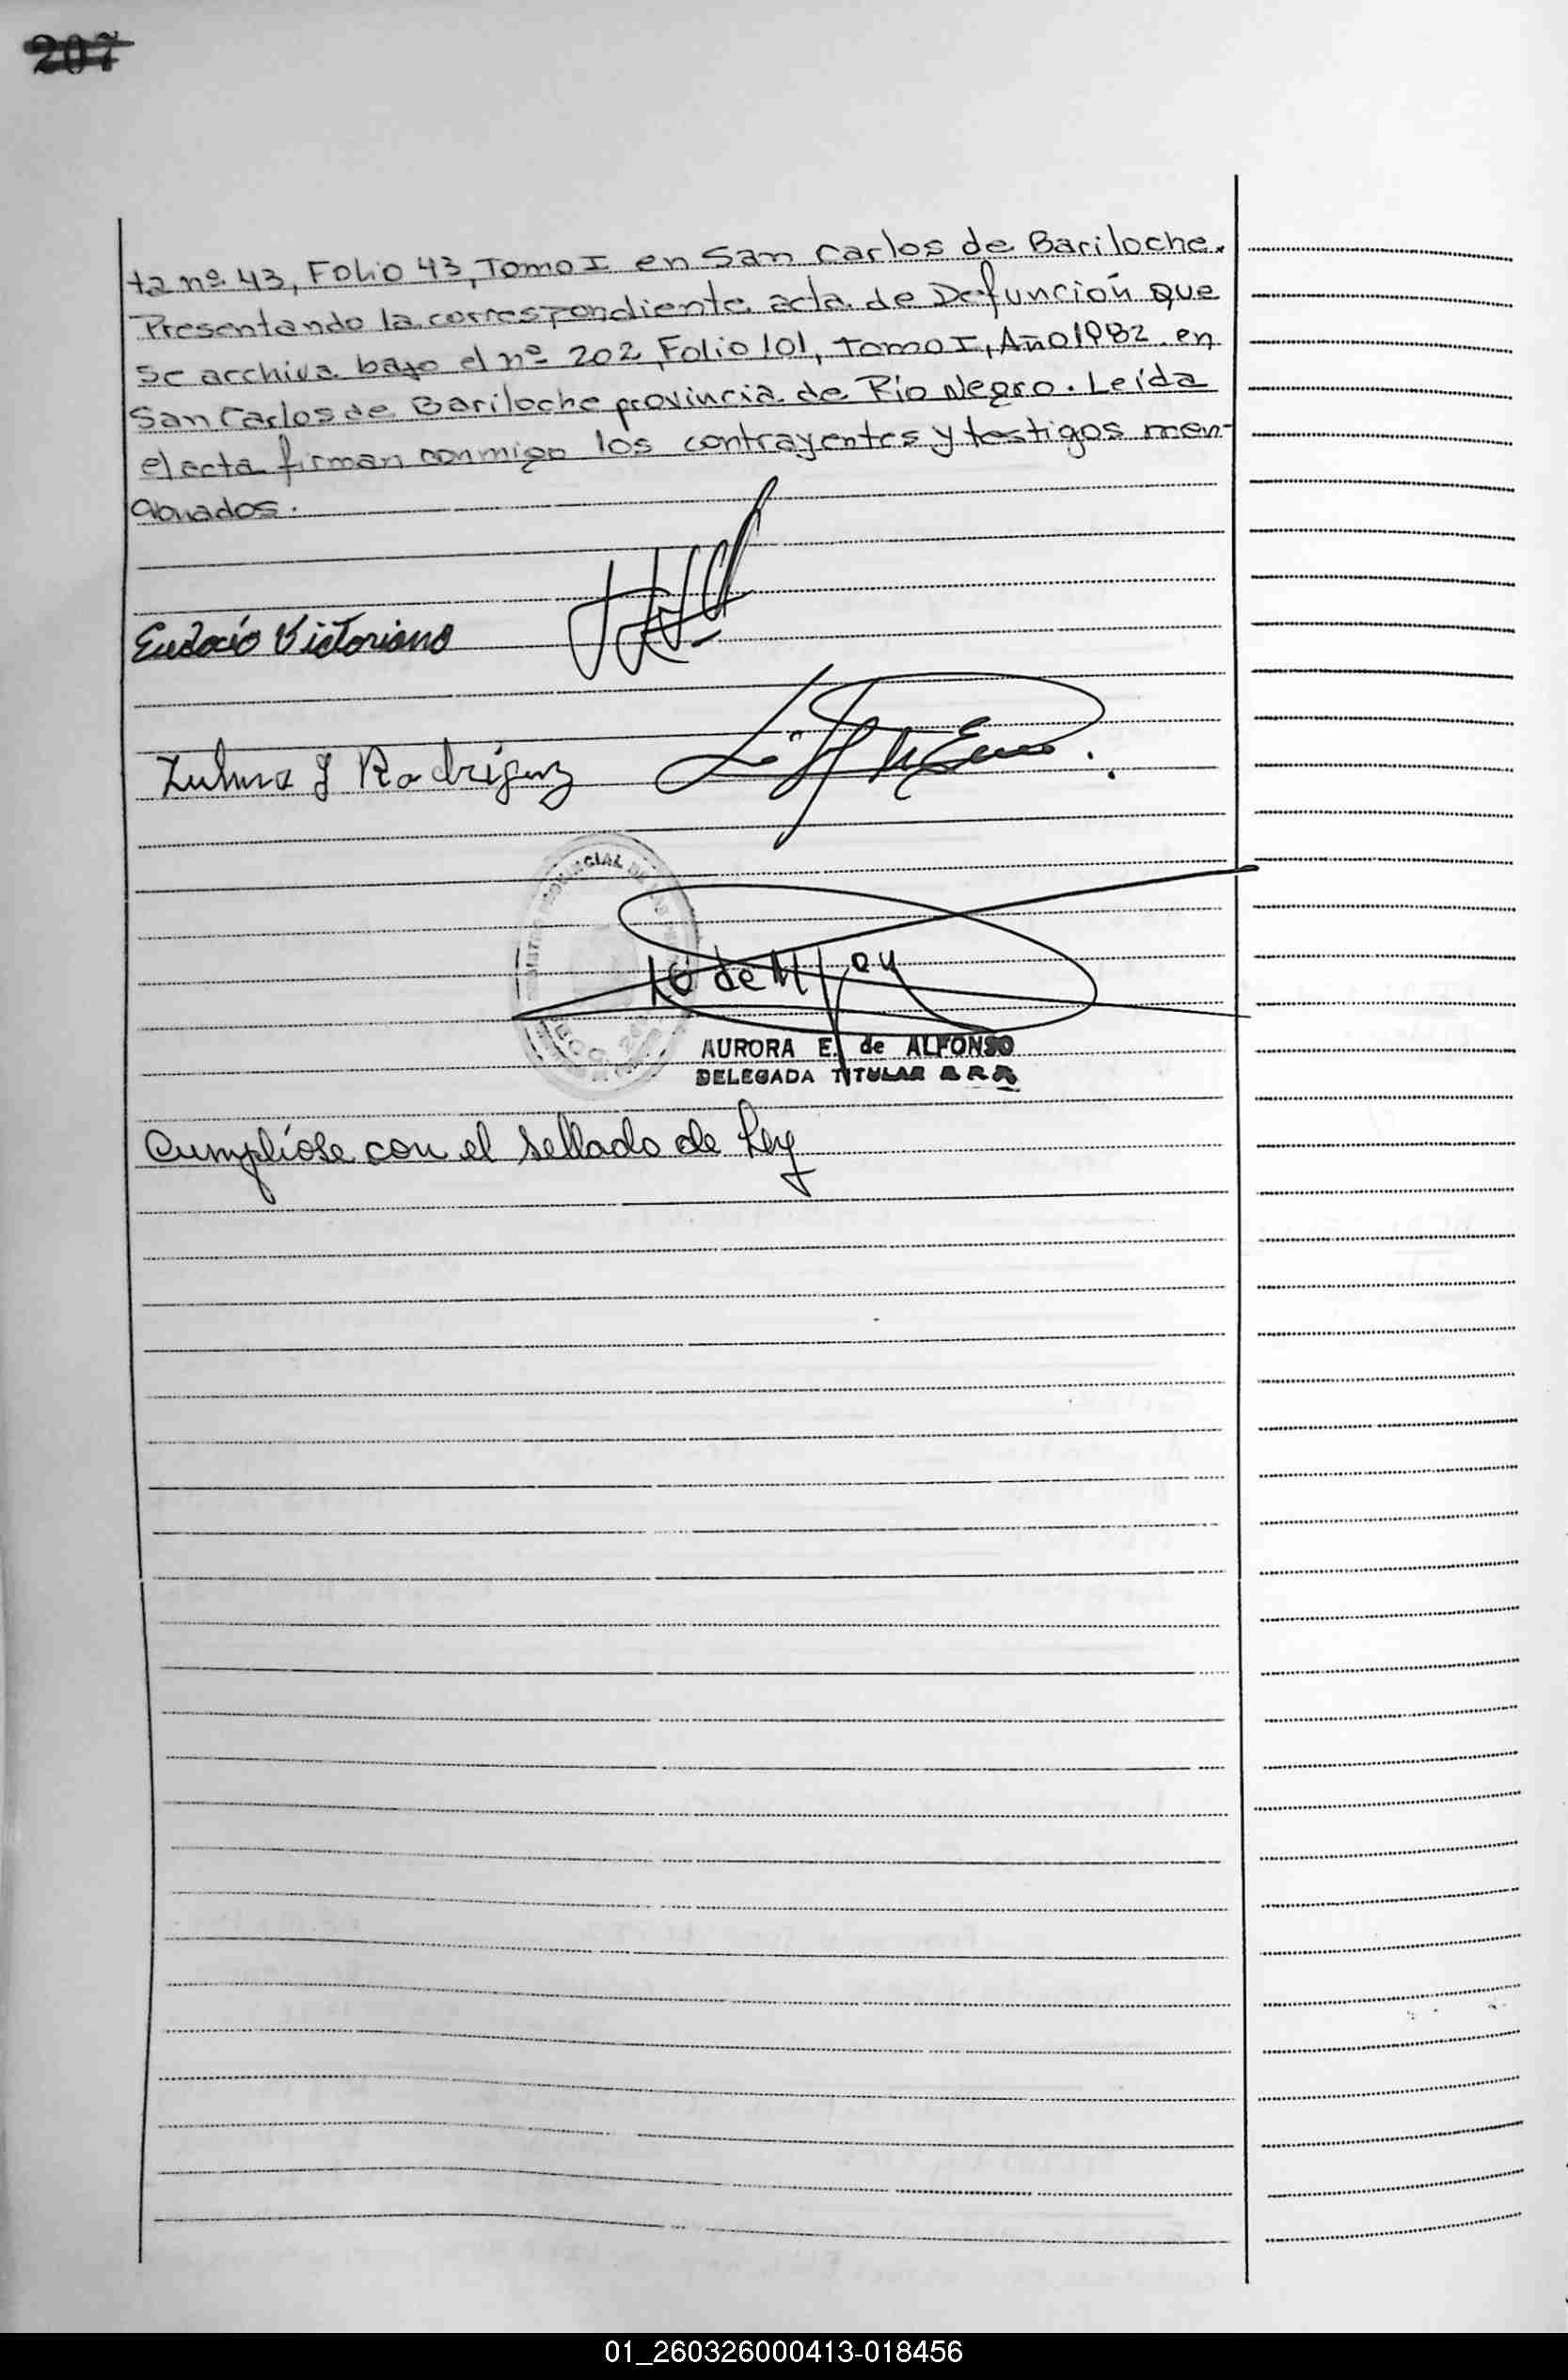 207
ta nº 43, Folio 43, Tomo I en San Carlos de Bariloche.
Presentando la correspondiente acta de Defunción que
se archiva bajo el nº 202, Folio 101, Tomo I, Año 1982 en
San Carlos de Bariloche provincia de Río Negro. Leída
el acta firman conmigo los contrayentes y testigos men-
cionados.
Eudocio Victoriano
Zulma J Rodríguez
AURORA E. de ALFONSO
DELEGADA TITULAR
Cumplióse con el sellado de Ley
01_260326000413-018456